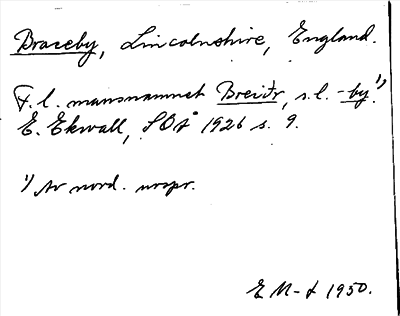 Braceby, Lincolnshire, England.
F. l. mansnamnet Breiðr, s. l. -by¹⁾.
E. Ekwall, SOÅ 1926 s. 9.
¹⁾ Av nord. urspr.
E M-t 1950.